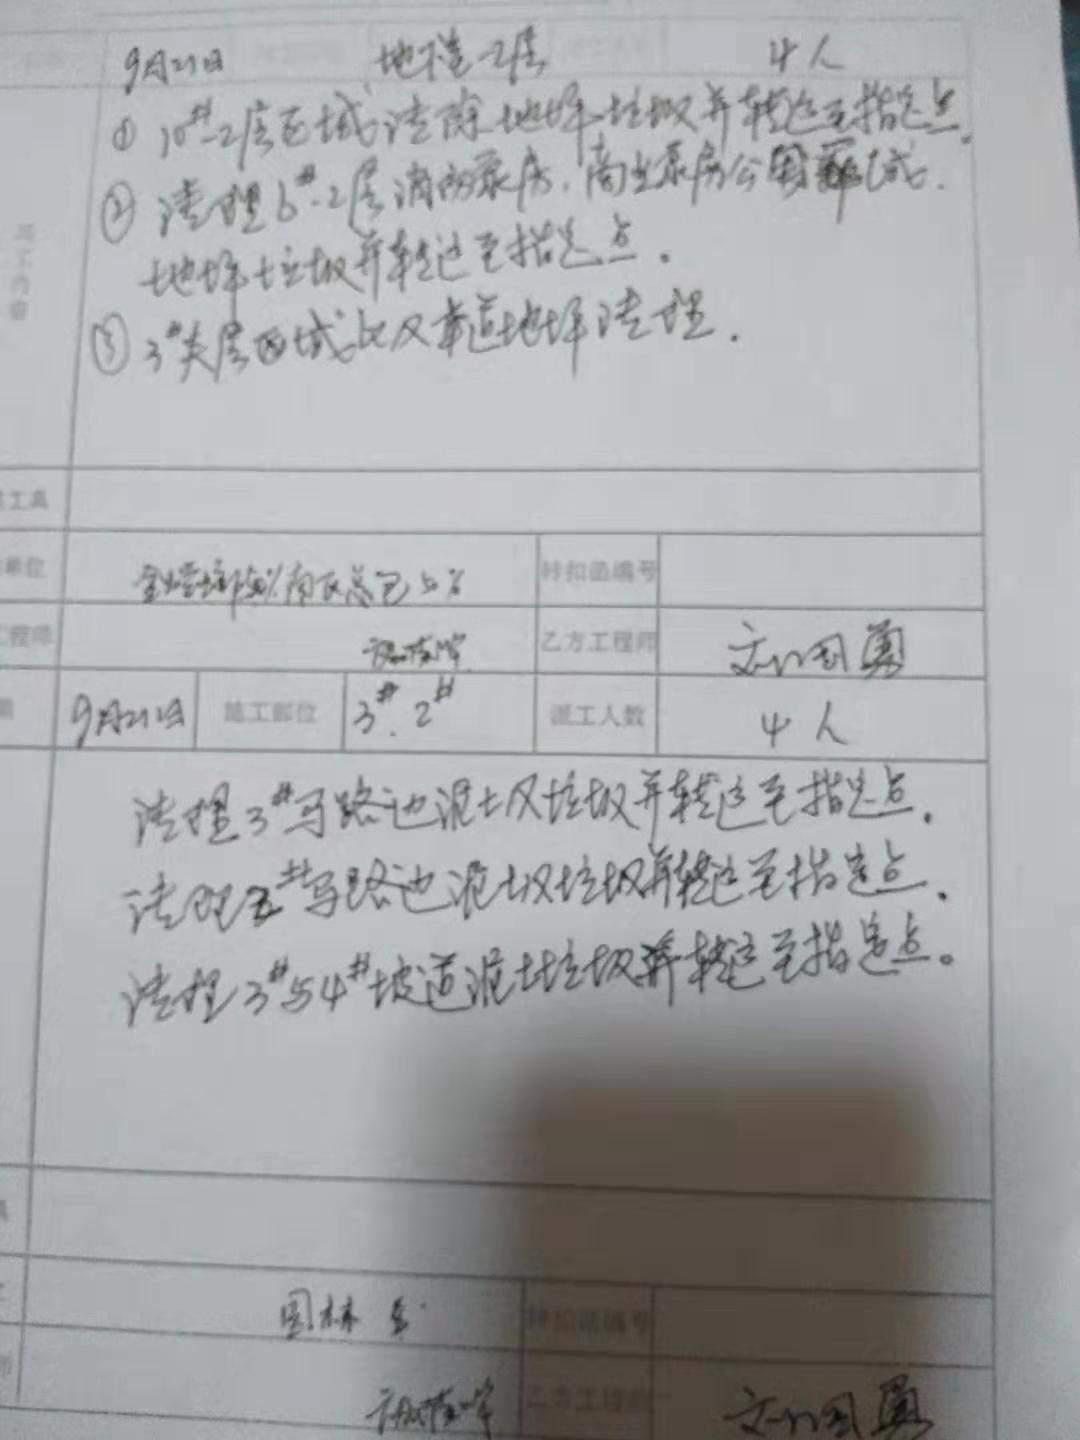 9月21日 地下室-2层 4人
① 10#-2层区域清除地坪垃圾并转运至指定点.
② 清理6#-2层消防泵房.商业泵房公区域.
施工内容
地坪垃圾并转运至指定点.
③ 3#夹层区域以及车道地坪清理.
工具
单位 总包5% 转扣函编号
工程师 乙方工程师 刘国勇
9月21日 施工部位 3#.2# 派工人数 4人
清理3#马路边泥土及垃圾并转运至指定点.
清理2#马路边泥土及垃圾并转运至指定点.
清理3#与4#坡道泥土垃圾并转运至指定点。
园林 转扣函编号
乙方工程师 刘国勇